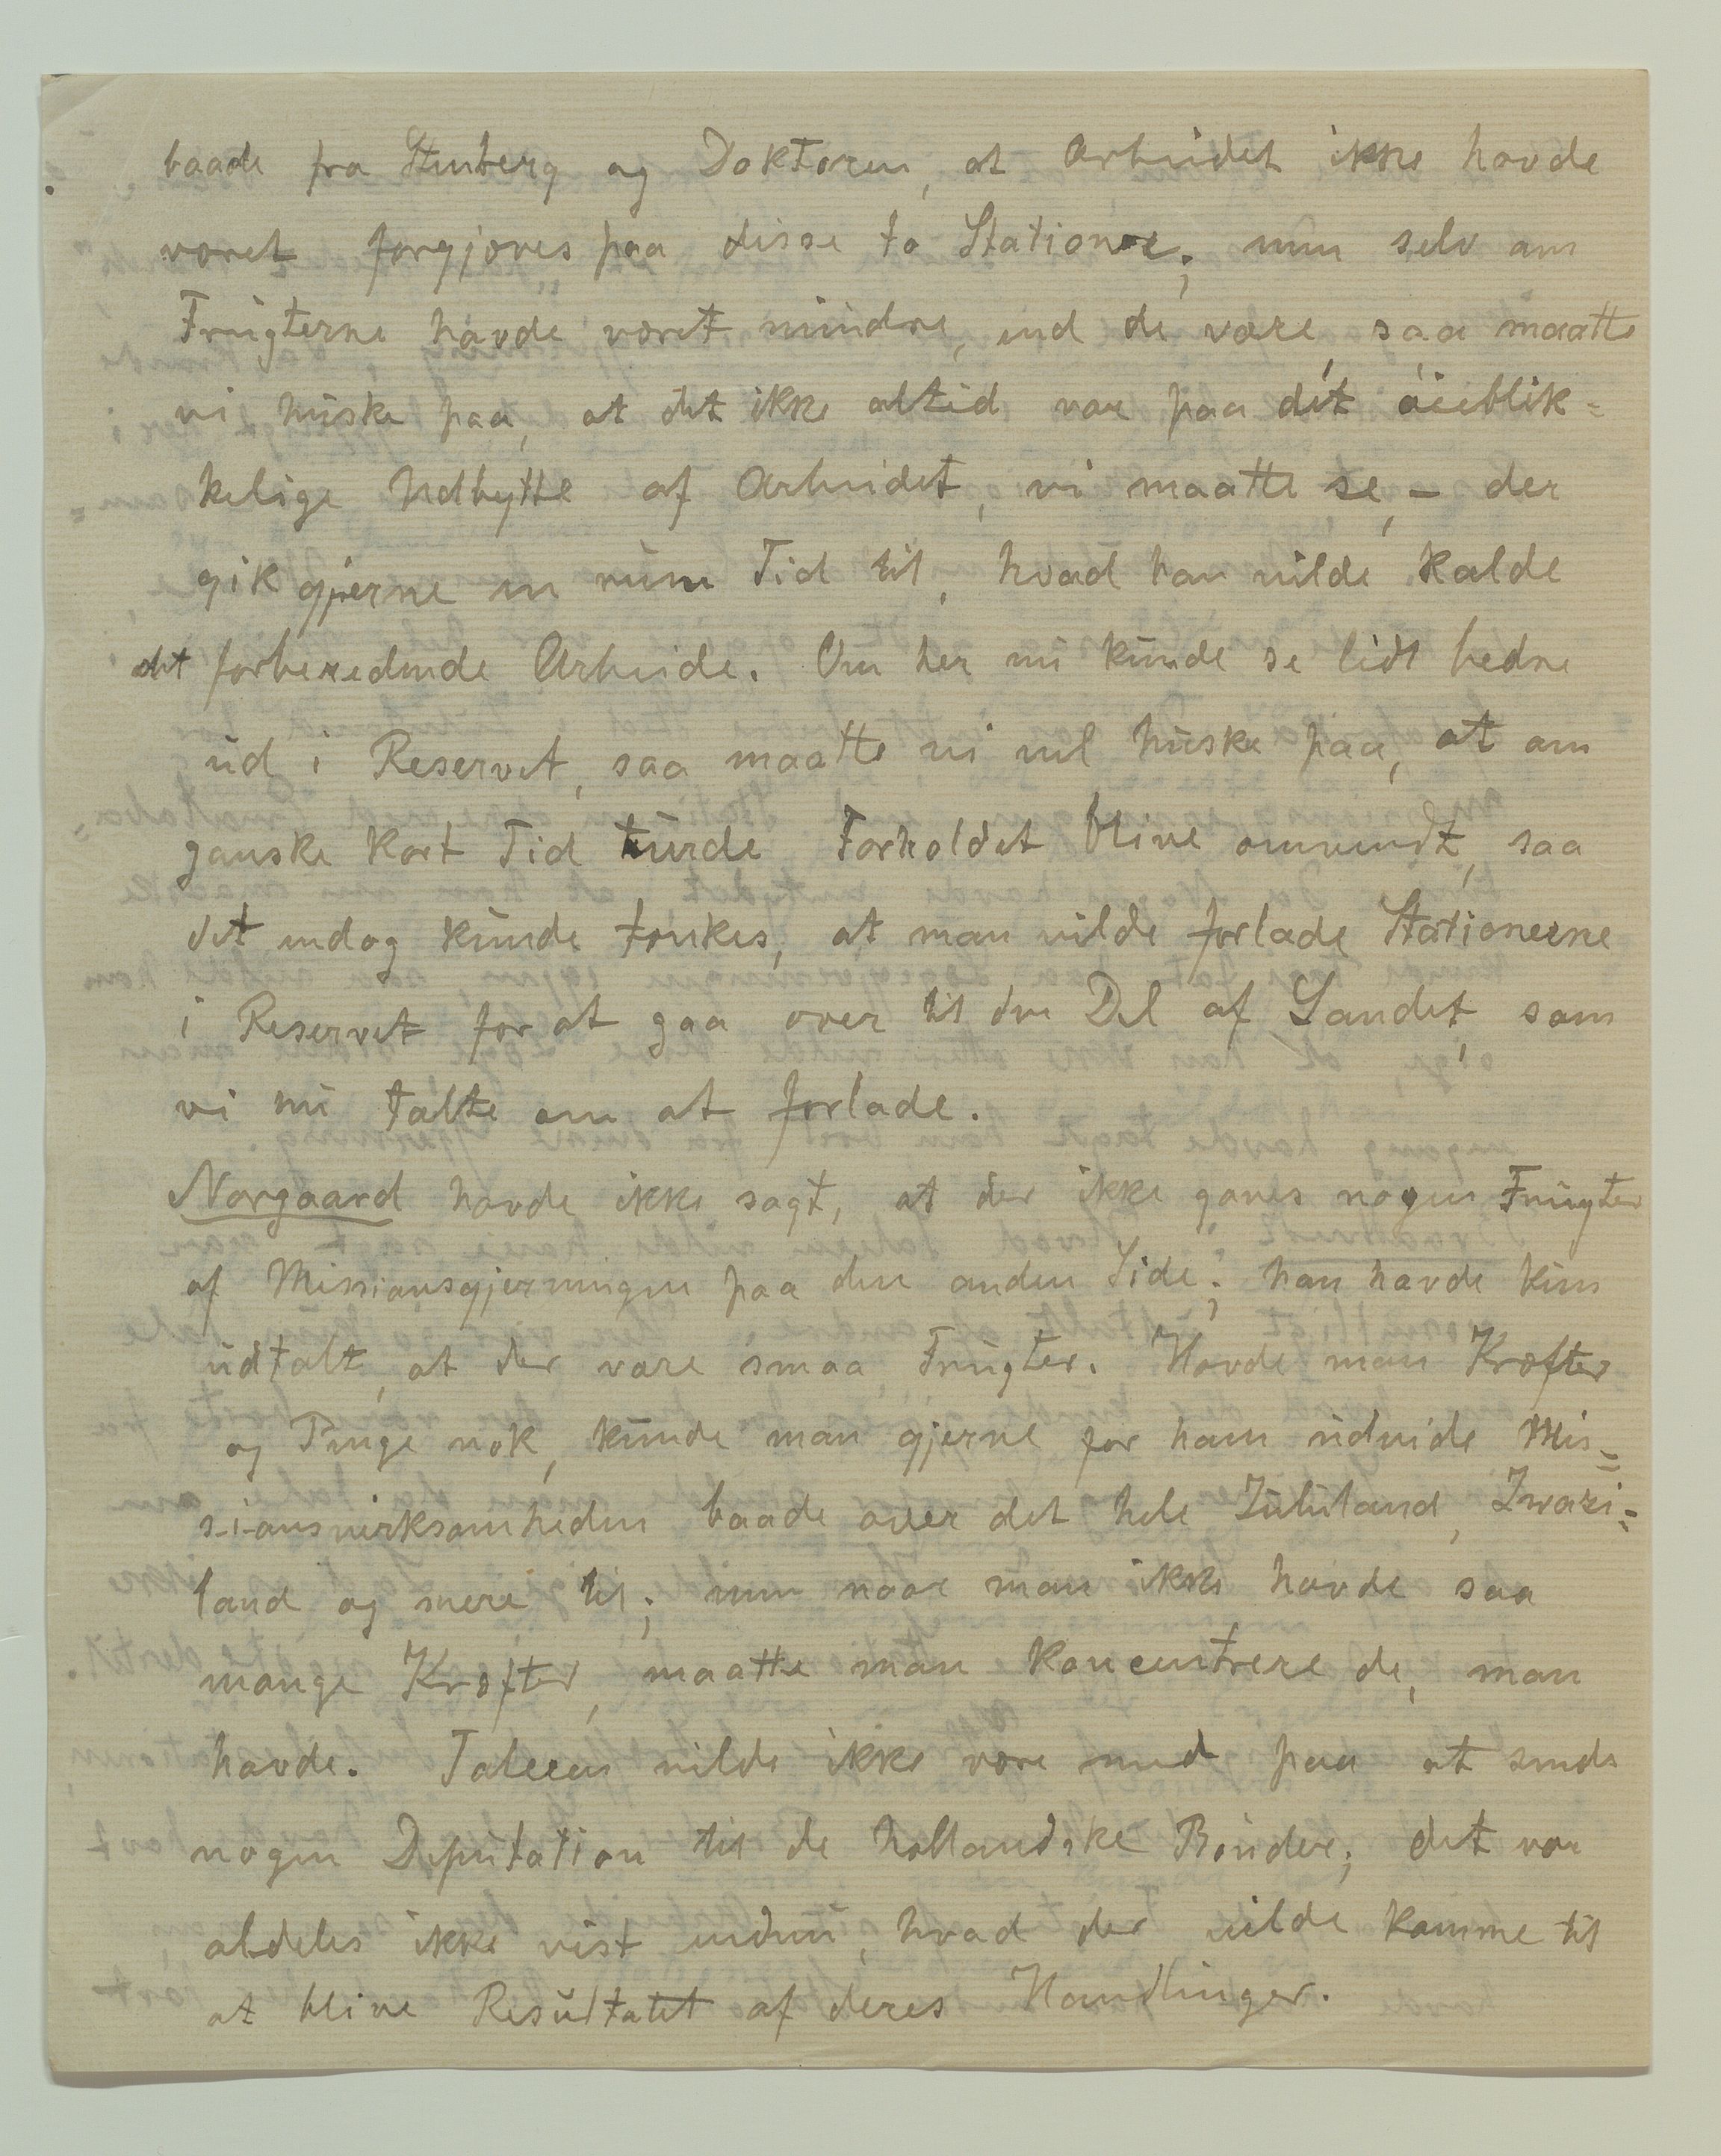 baade fra Stenberg og Doktoren, at Arbeidet ikke havde
været forgjæves paa disse to Stationer; men selv om
Frugterne havde været mindre, end de vare, saa maatte
vi huske paa, at det ikke altid var paa dét øieblik-
kelige Udbytte af Arbeidet, vi maatte se, – der
gik gjerne en rum Tid til, hvad han vilde kalde
det forberedende Arbeide. Om her nu kunde se lidt bedre
ud i Reservet, saa maatte vi vel huske paa, at om
ganske kort Tid turde Forholdet blive omvendt, saa
det endog kunde tænkes, at man vilde forlade Stationerne
i Reservet for at gaa over til den Del af Landet, som
vi nu talte om at forlade.
Norgaard havde ikke sagt, at der ikke gaves nogen Frugter
af Missionsgjerningen paa den anden Side; han havde kun
udtalt, at der vare smaa Frugter. Havde man Kræfter
og Penge nok, kunde man gjerne for ham udvide Mis=
sionsvirksomheden baade over det hele Zululand, Zwazi=
land og mere til; men naar man ikke havde saa
mange Kræfter, maatte man koncentrere de, man
havde. Taleren vilde ikke være med paa at sende
nogen Deputation til de hollandske Bønder; det var
aldeles ikke vist endnu, hvad der vilde komme til
at blive Resultatet af deres Handlinger.